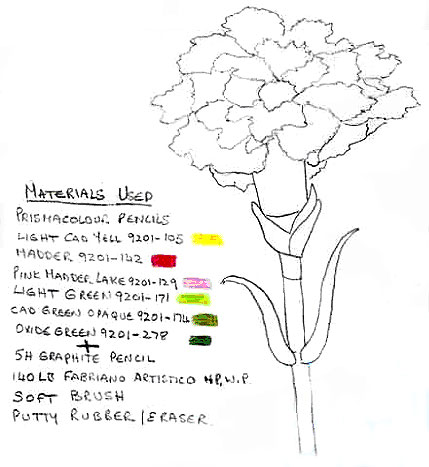 MATERIALS USED
PRISMACOLOUR PENCILS
LIGHT CAD YELL 9201-105
MADDER 9201-142
PINK MADDER LAKE 9201-129
LIGHT GREEN 9201-171
CAD GREEN OPAQUE 9201-174
OXIDE GREEN 9201-278
+
5H GRAPHITE PENCIL
140LB FABRIANO ARTISTICO HP, W.P.
SOFT BRUSH
PUTTY RUBBER / ERASER